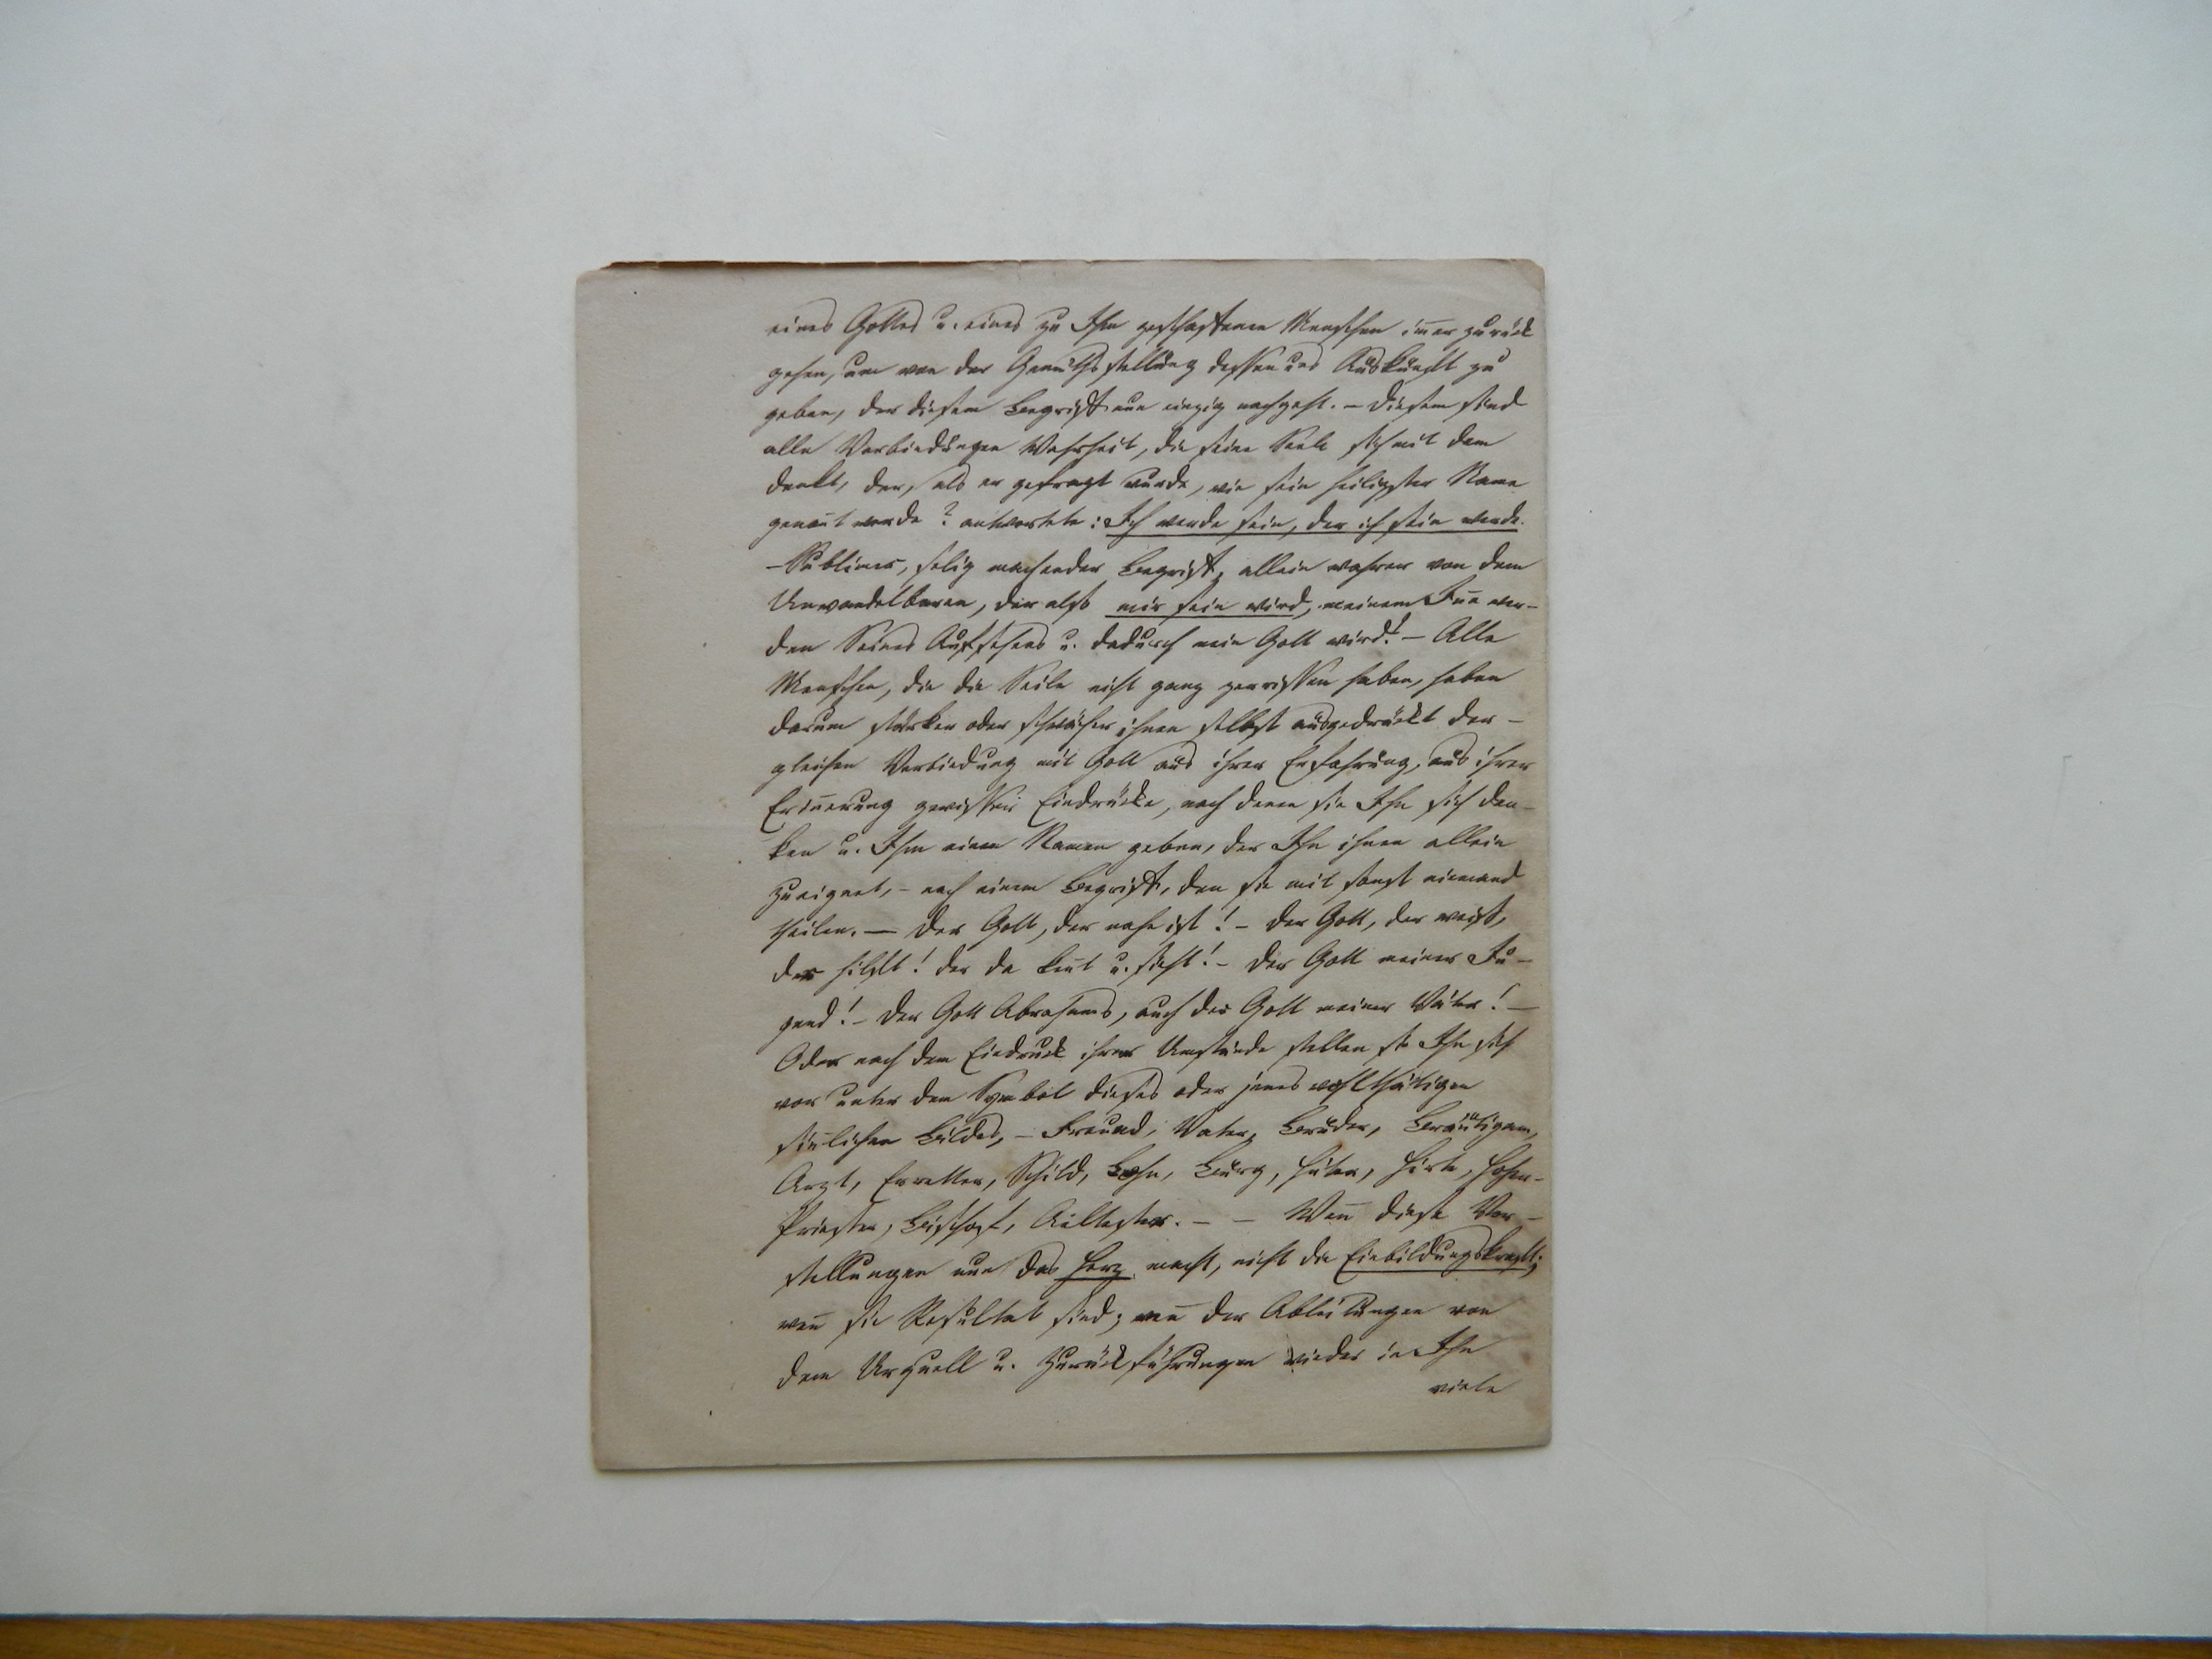 eines Gottes u. eines zu Ihm geschaffenen Menschen im̄er zurück
gehen, um von der Gemüthsstellung dessen uns Auskunft zu
geben, der diesem Begriff nun einzig nachgeht. – Diesem sind
alle Verbindungen Wahrheit, die seine Seele sich mit dem
denkt, der, als er gefragt wurde, wie sein heiligster Name
genan̄t werde? antwortete: Ich werde sein, der ich sein werde.
– Sublimer, selig machender Begriff, allein wahrer von dem
Unwandelbaren, der also mir sein wird, meinem In̄e wer-
den Seines Aufsehens u. dadurch mein Gott wird! – Alle
Menschen, die die Seile nicht ganz zerrissen haben, haben
darum stärker oder schwächer ihnen selbst ausgedrückt der-
gleichen Verbindung mit Gott aus ihrer Erfahrung, aus ihrer
Erin̄erung gewisser Eindrücke, nach denen sie Ihn sich den-
ken u. Ihm einen Namen geben, der Ihn ihnen allein
zueignet, – nach einem Begriff, den sie mit sonst niemand
theilen. — Der Gott, der nahe ist! – Der Gott, der weiß,
der hilft! der da ken̄t u. sieht! – Der Gott meiner Ju-
gend! – Der Gott Abrahams, auch der Gott meiner Väter! –
Oder nach dem Eindruck ihrer Umstände stellen sie Ihn sich
vor unter dem Symbol dieses oder jenes wohlthätigen
sin̄lichen Bildes, – Freund, Vater, Bruder, Bräutigam,
Arzt, Erretter, Schild, Lohn, Burg, Hüter, Hirte, Hohen-
Priester, Bischoff, Aeltester. – – Wen̄ diese Vor-
stellungen nun das Herz macht, nicht die Einbildungskraft;
wen̄ sie Resultat sind; wen̄ der Ableitungen von
dem Urquell u. Zurückführungen wieder in Ihn
viele